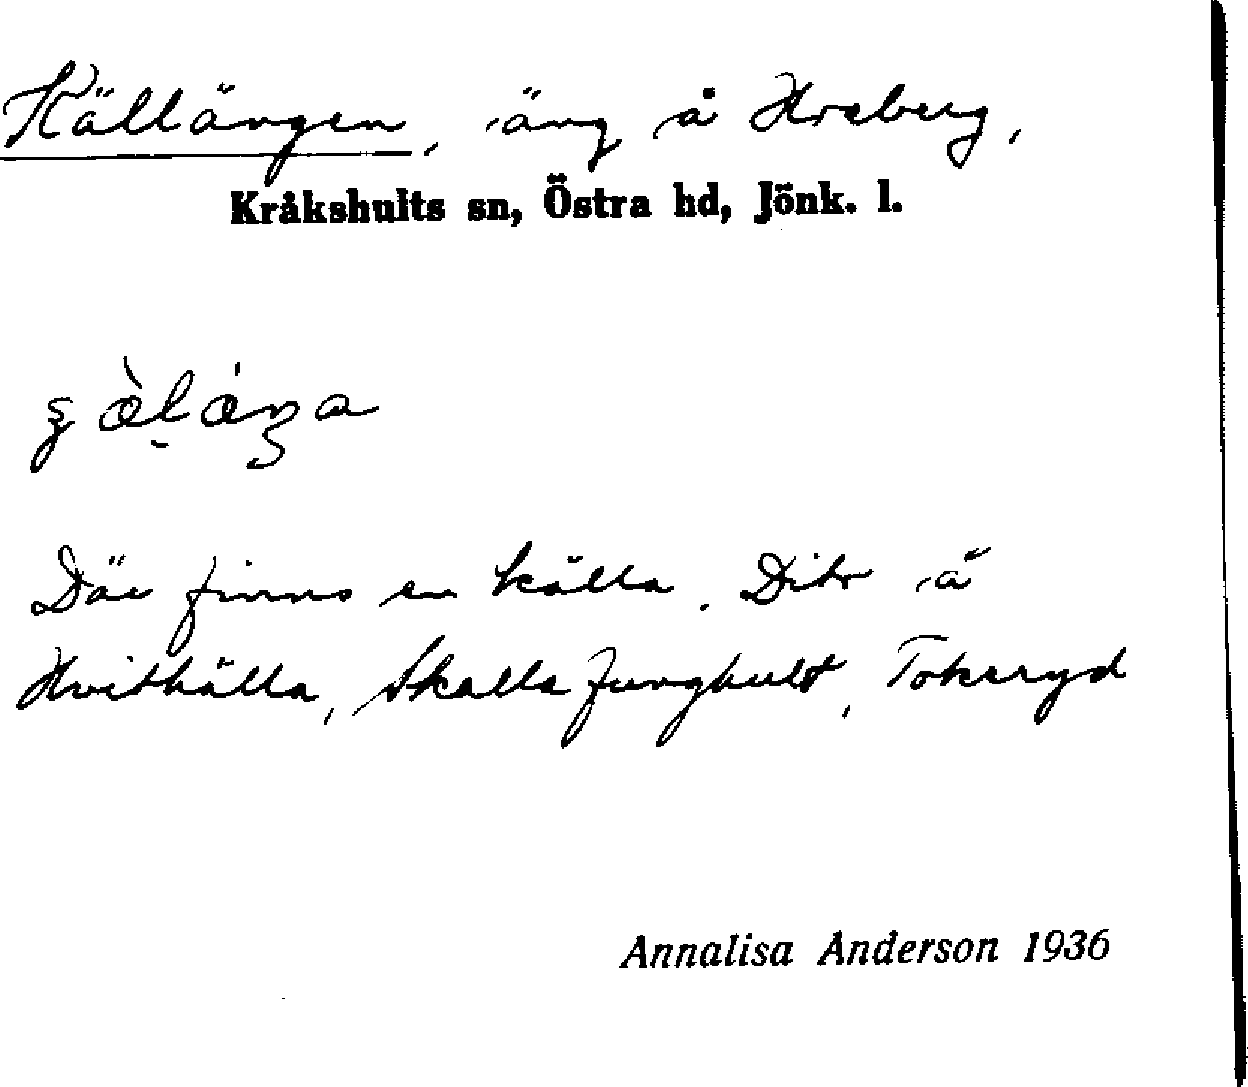 Källängen, äng å Hraberg,
Kråkshults sn, Östra hd, Jönk. l.
Där finns en källa. Dito å
Hvithälla, Skalla Junghult, Tokaryd
Annalisa Anderson 1936